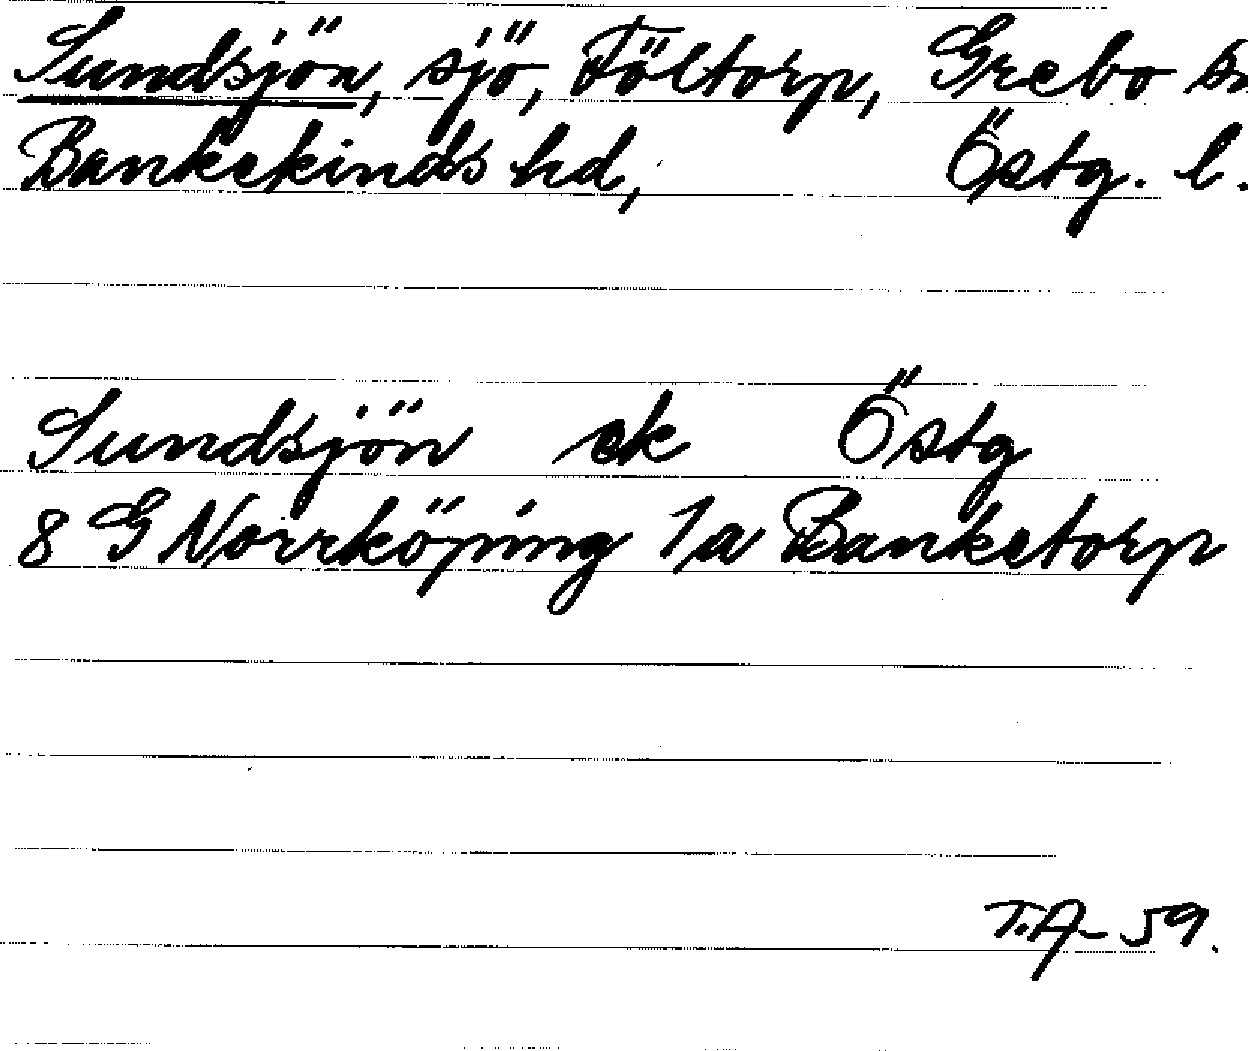 Sundsjön, sjö, Föltorp, Grebo sn
Bankekinds hd, Östg. l.
Sundsjön ek Östg
8 G Norrköping 1a Banketorp
T.A-59.